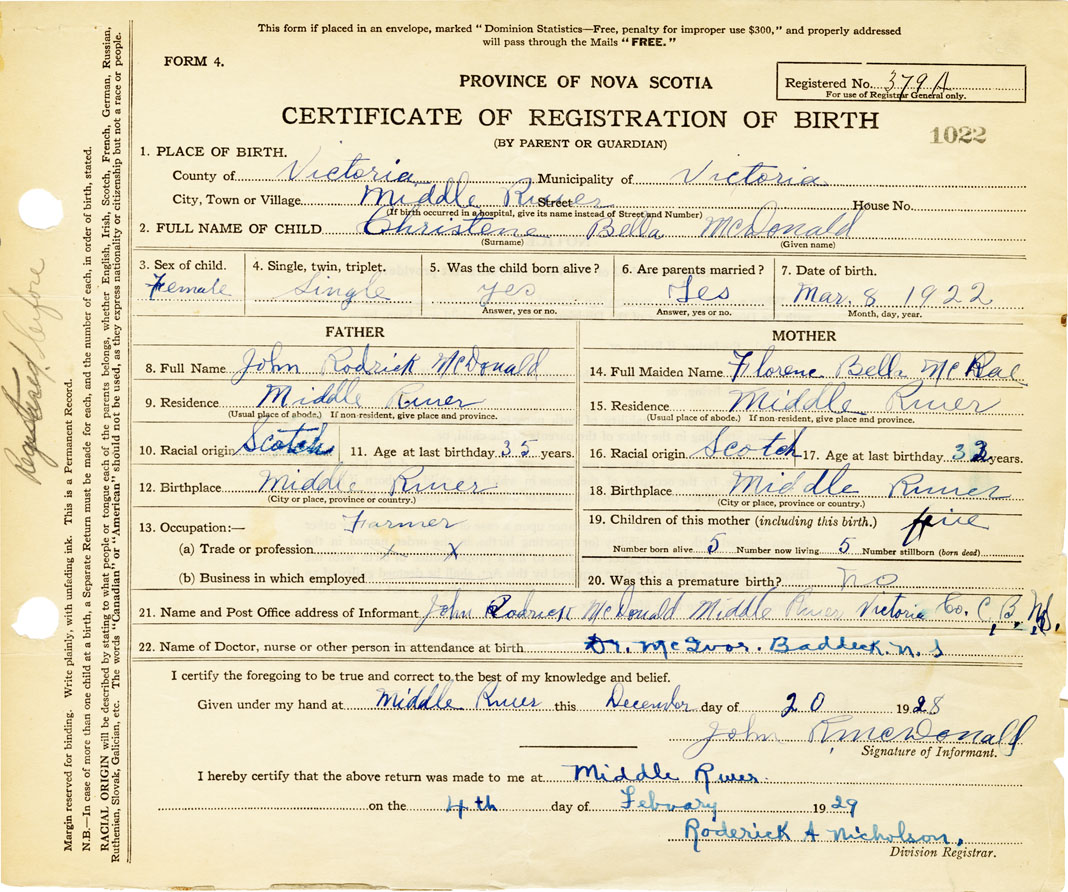 This form if placed in an envelope, marked “Dominion Statistics—Free, penalty for improper use $300,” and properly addressed
will pass through the Mails “FREE.”
FORM 4.
PROVINCE OF NOVA SCOTIA
Registered No. 379 A
For use of Registrar General only.
CERTIFICATE OF REGISTRATION OF BIRTH
1022
(BY PARENT OR GUARDIAN)
1. PLACE OF BIRTH.
County of Victoria Municipality of Victoria
City, Town or Village Middle River Street House No.
(If birth occurred in a hospital, give its name instead of Street and Number)
2. FULL NAME OF CHILD Christene Bella McDonald
(Surname) (Given name)
3. Sex of child. 4. Single, twin, triplet. 5. Was the child born alive? 6. Are parents married? 7. Date of birth.
Female Single yes Yes Mar. 8 1922
Answer, yes or no. Answer, yes or no. Month, day, year.
FATHER
8. Full Name John Rodrick McDonald
9. Residence Middle River
(Usual place of abode.) If non resident, give place and province.
10. Racial origin Scotch 11. Age at last birthday 35 years.
12. Birthplace Middle River
(City or place, province or country.)
13. Occupation:— Farmer
(a) Trade or profession x x
(b) Business in which employed
MOTHER
14. Full Maiden Name Florence Bella McRae
15. Residence Middle River
(Usual place of abode.) If non resident, give place and province.
16. Racial origin Scotch 17. Age at last birthday 32 years.
18. Birthplace Middle River
(City or place, province or country.)
19. Children of this mother (including this birth.) five
Number born alive 5 Number now living 5 Number stillborn (born dead)
20. Was this a premature birth? no
21. Name and Post Office address of Informant John Rodrick McDonald Middle River Victoria Co. C. B. N.S.
22. Name of Doctor, nurse or other person in attendance at birth Dr. McIvor. Baddeck. N. S
I certify the foregoing to be true and correct to the best of my knowledge and belief.
Given under my hand at Middle River this December day of 20 1928
John R McDonald
Signature of Informant.
I hereby certify that the above return was made to me at Middle River
on the 4th day of Febuary 1929
Roderick A Nicholson.
Division Registrar.
Registered before
Margin reserved for binding. Write plainly, with unfading ink. This is a Permanent Record.
N.B.—In case of more than one child at a birth, a Separate Return must be made for each, and the number of each, in order of birth, stated.
RACIAL ORIGIN will be described by stating to what people or tongue each of the parents belongs, whether English, Irish, Scotch, French, German, Russian,
Ruthenian, Slovak, Galician, etc. The words “Canadian” or “American” should not be used, as they express nationality or citizenship but not a race or people.